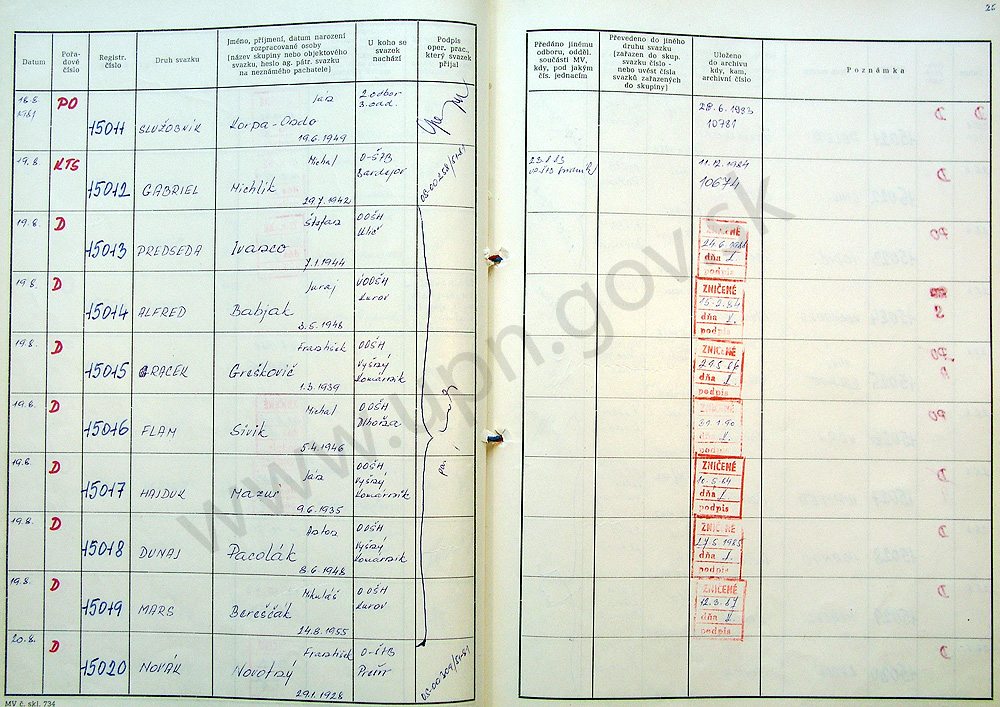 25
Datum
Pořadové číslo
Registr. číslo
Druh svazku
Jméno, příjmení, datum narození rozpracované osoby (název skupiny nebo objektového svazku, heslo ag. pátr. svazku na neznámého pachatele)
U koho se svazek nachází
Podpis oper. prac., který svazek přijal
Předáno jinému odboru, odděl. součásti MV, kdy, pod jakým čís. jednacím
Převedeno do jiného druhu svazku (zařazen do skup. svazku číslo - nebo uvést čísla svazků zařazených do skupiny)
Uloženo do archivu kdy, kam, archivní číslo
Poznámka
18.8. 1981 PO 15011 SLUŽOBNÍK Ján Korpa-Ondo 19.6.1949 2. odbor 3. odd. 28.6.1983 10781
19.8. KTS 15012 GABRIEL Michal Michlik 29.7.1942 O-ŠtB Bardejov 11.12.1984 10674
19.8. D 15013 PREDSEDA Štefan Ivanco 7.1.1944 OOŠH Ulič ZNIČENÉ dňa podpis
19.8. D 15014 ALFRED Juraj Babjak 3.5.1948 OOŠH Kurov ZNIČENÉ 15.3.84 dňa podpis
19.8. D 15015 GRACEK František Greškovič 1.3.1939 OOŠH Vyšný Komárnik ZNIČENÉ dňa podpis
19.8. D 15016 FLAM Michal Sivik 5.4.1946 OOŠH ZNIČENÉ 31.1.90 dňa podpis
19.8. D 15017 HAJDUK Ján Mazur 9.6.1935 OOŠH Vyšný Komárnik ZNIČENÉ dňa podpis
19.8. D 15018 DUNAJ Anton Pacolák 8.6.1948 OOŠH Vyšný Komárnik ZNIČENÉ 17.5.1985 dňa podpis
19.8. D 15019 MARS Mikuláš Bereščák 24.8.1955 OOŠH Kurov ZNIČENÉ 12.3.87 dňa podpis
20.8. D 15020 NOVÁK František Novotný 29.1.1928 O-ŠtB
MV č. skl. 734
www.upn.gov.sk